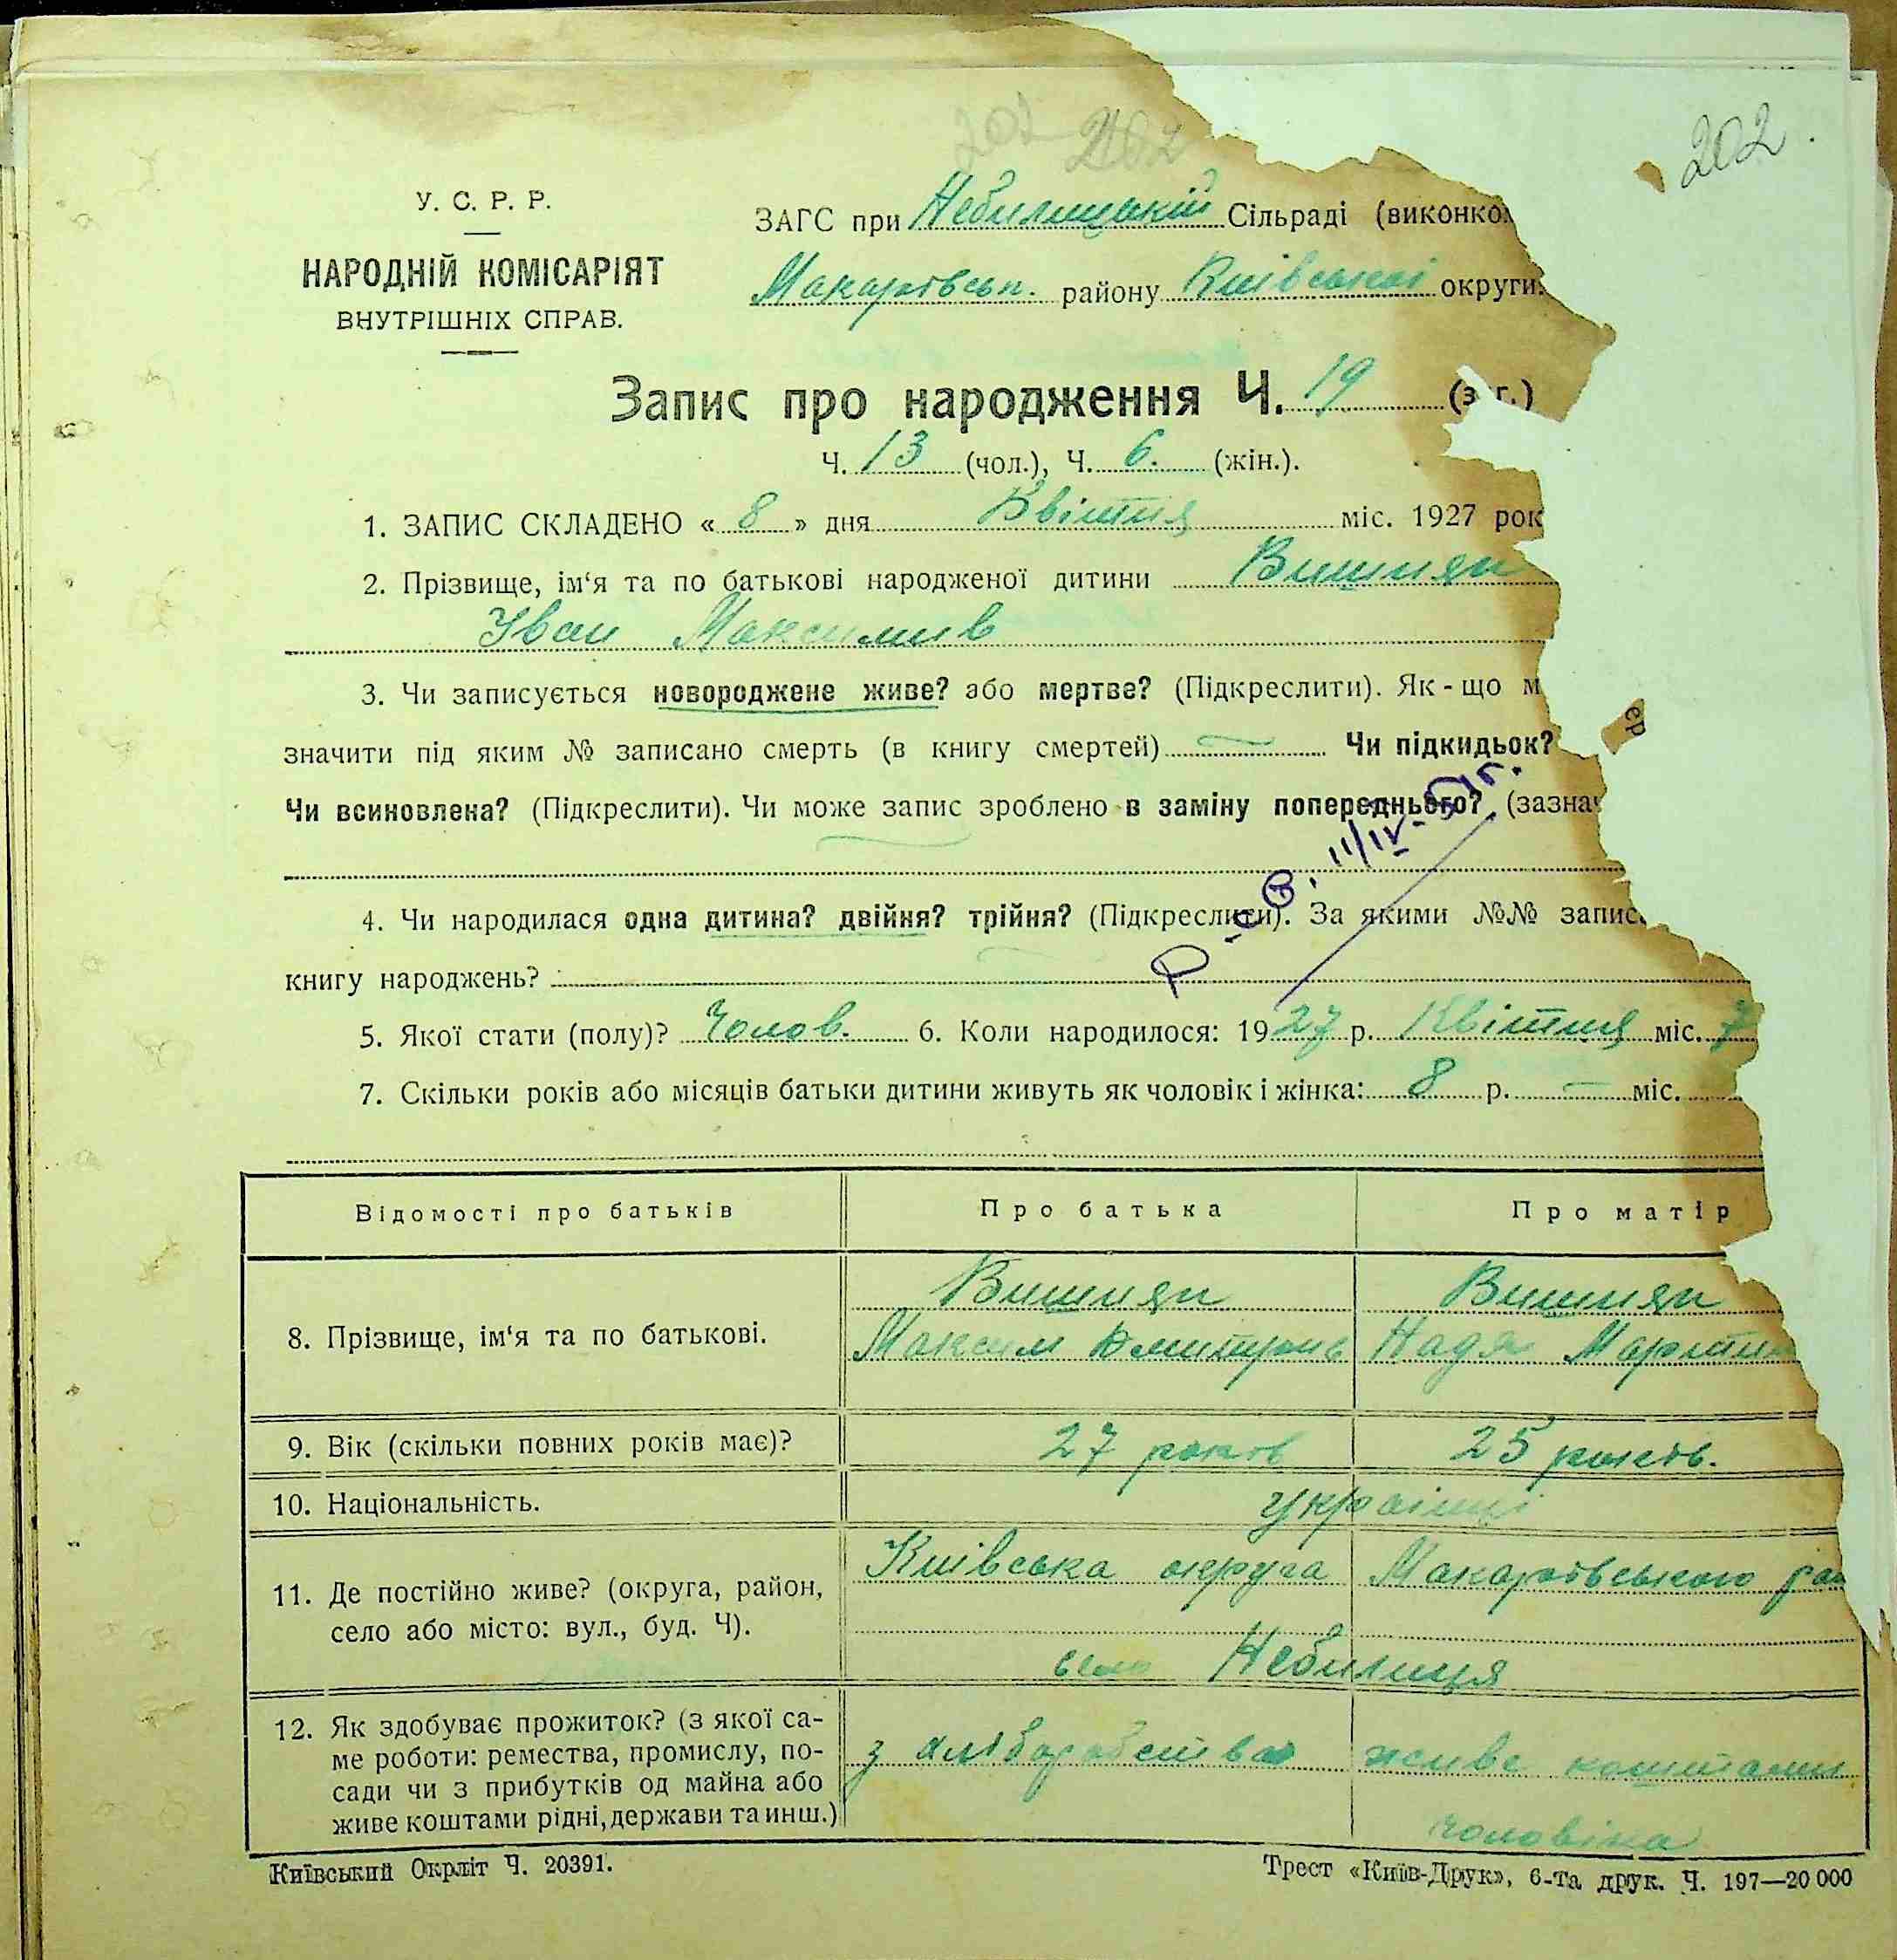 202 202
202.
У. С. Р. Р.
НАРОДНІЙ КОМІСАРІЯТ
ВНУТРІШНІХ СПРАВ.
ЗАГС при Небилицькій Сільраді (виконко
Макарівськ. району Київської округи
Запис про народження Ч. 19 (з г.)
Ч. 13 (чол.), Ч. 6. (жін.).
1. ЗАПИС СКЛАДЕНО « 8 » дня Квітня міс. 1927 рок
2. Прізвище, ім‘я та по батькові народженої дитини Вишняк
Іван Максимів
3. Чи записується новороджене живе? або мертве? (Підкреслити). Як-що м
значити під яким № записано смерть (в книгу смертей) Чи підкидьок?
ер
Чи всиновлена? (Підкреслити). Чи може запис зроблено в заміну попереднього? (зазнач
11/IV-51г.
4. Чи народилася одна дитина? двійня? трійня? (Підкреслити). За якими №№ запис
книгу народжень?
5. Якої стати (полу)? Чолов. 6. Коли народилося: 1927 р. Квітня міс. 7
7. Скільки років або місяців батьки дитини живуть як чоловік і жінка: 8 р. — міс.
Відомості про батьків Про батька Про матір
8. Прізвище, ім‘я та по батькові.
Вишняк Вишняк
Максим Дмитрів Надя Мартин
9. Вік (скільки повних років має)? 27 років 25 років.
10. Національність. Українці
11. Де постійно живе? (округа, район,
село або місто: вул., буд. Ч).
Київська округа Макарівського рай
село Небилиця
12. Як здобуває прожиток? (з якої са-
ме роботи: ремества, промислу, по-
сади чи з прибутків од майна або
живе коштами рідні, держави та инш.)
з хліборобства живе коштами
чоловіка
Київський Окрліт Ч. 20391.
Трест «Київ-Друк», 6-та друк. Ч. 197—20 000